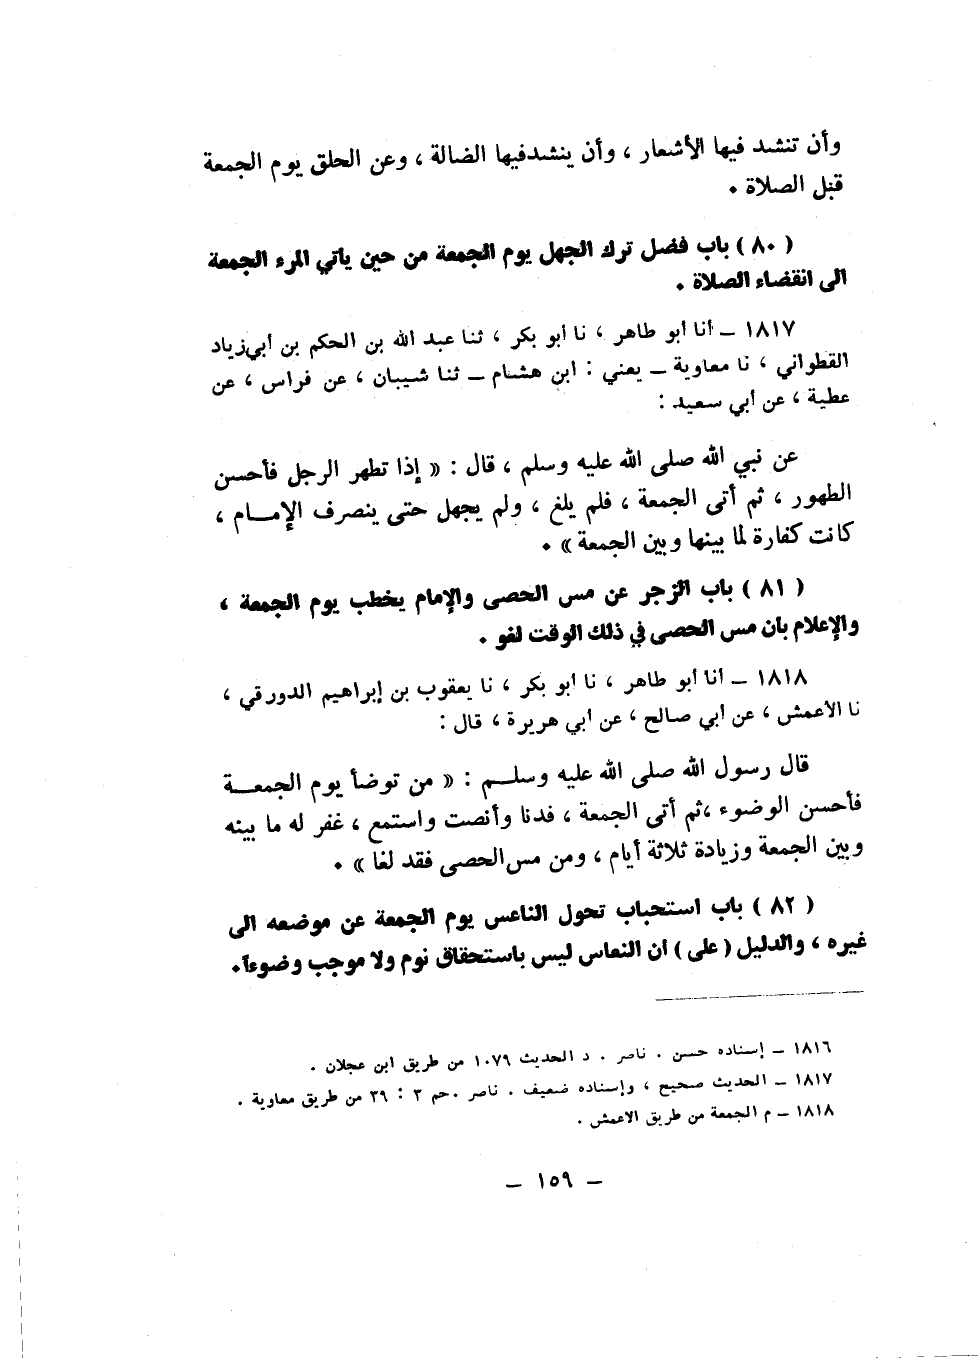 وأن تنشد فيها الأشعار ، وأن ينشدفيها الضالة ، وعن الحلق يوم الجمعة
قبل الصلاة .
( ٨٠ ) باب فضل ترك الجهل يوم الجمعة من حين يأتي المرء الجمعة
الى انقضاء الصلاة .
١٨١٧ ــ أنا أبو طاهر ، نا أبو بكر ، ثنا عبد الله بن الحكم بن أبي زياد
القطواني ، نا معاوية ــ يعني : ابن هشام ــ ثنا شيبان ، عن فراس ، عن
عطية ، عن أبي سعيد :
عن نبي الله صلى الله عليه وسلم ، قال : « إذا تطهر الرجل فأحسن
الطهور ، ثم أتى الجمعة ، فلم يلغ ، ولم يجهل حتى ينصرف الإمــام ،
كانت كفارة لما بينها وبين الجمعة » .
( ٨١ ) باب الزجر عن مس الحصى والإمام يخطب يوم الجمعة ،
والإعلام بان مس الحصى في ذلك الوقت لغو .
١٨١٨ ــ أنا أبو طاهر ، نا أبو بكر ، نا يعقوب بن إبراهيم الدورقي ،
نا الأعمش ، عن أبي صالح ، عن أبي هريرة ، قال :
قال رسول الله صلى الله عليه وسلــم : « من توضأ يوم الجمعــة
فأحسن الوضوء ،ثم أتى الجمعة ، فدنا وأنصت واستمع ، غفر له ما بينه
وبين الجمعة وزيادة ثلاثة أيام ، ومن مس الحصى فقد لغا » .
( ٨٢ ) باب استحباب تحول الناعس يوم الجمعة عن موضعه الى
غيره ، والدليل ( على ) ان النعاس ليس باستحقاق نوم ولا موجب وضوءاً.
١٨١٦ ــ إسناده حسن . ناصر . د الحديث ١٠٧٩ من طريق ابن عجلان .
١٨١٧ ــ الحديث صحيح ، وإسناده ضعيف . ناصر .حم ٣ : ٣٩ من طريق معاوية .
١٨١٨ ــ م الجمعة من طريق الاعمش .
ــ ١٥٩ ــ